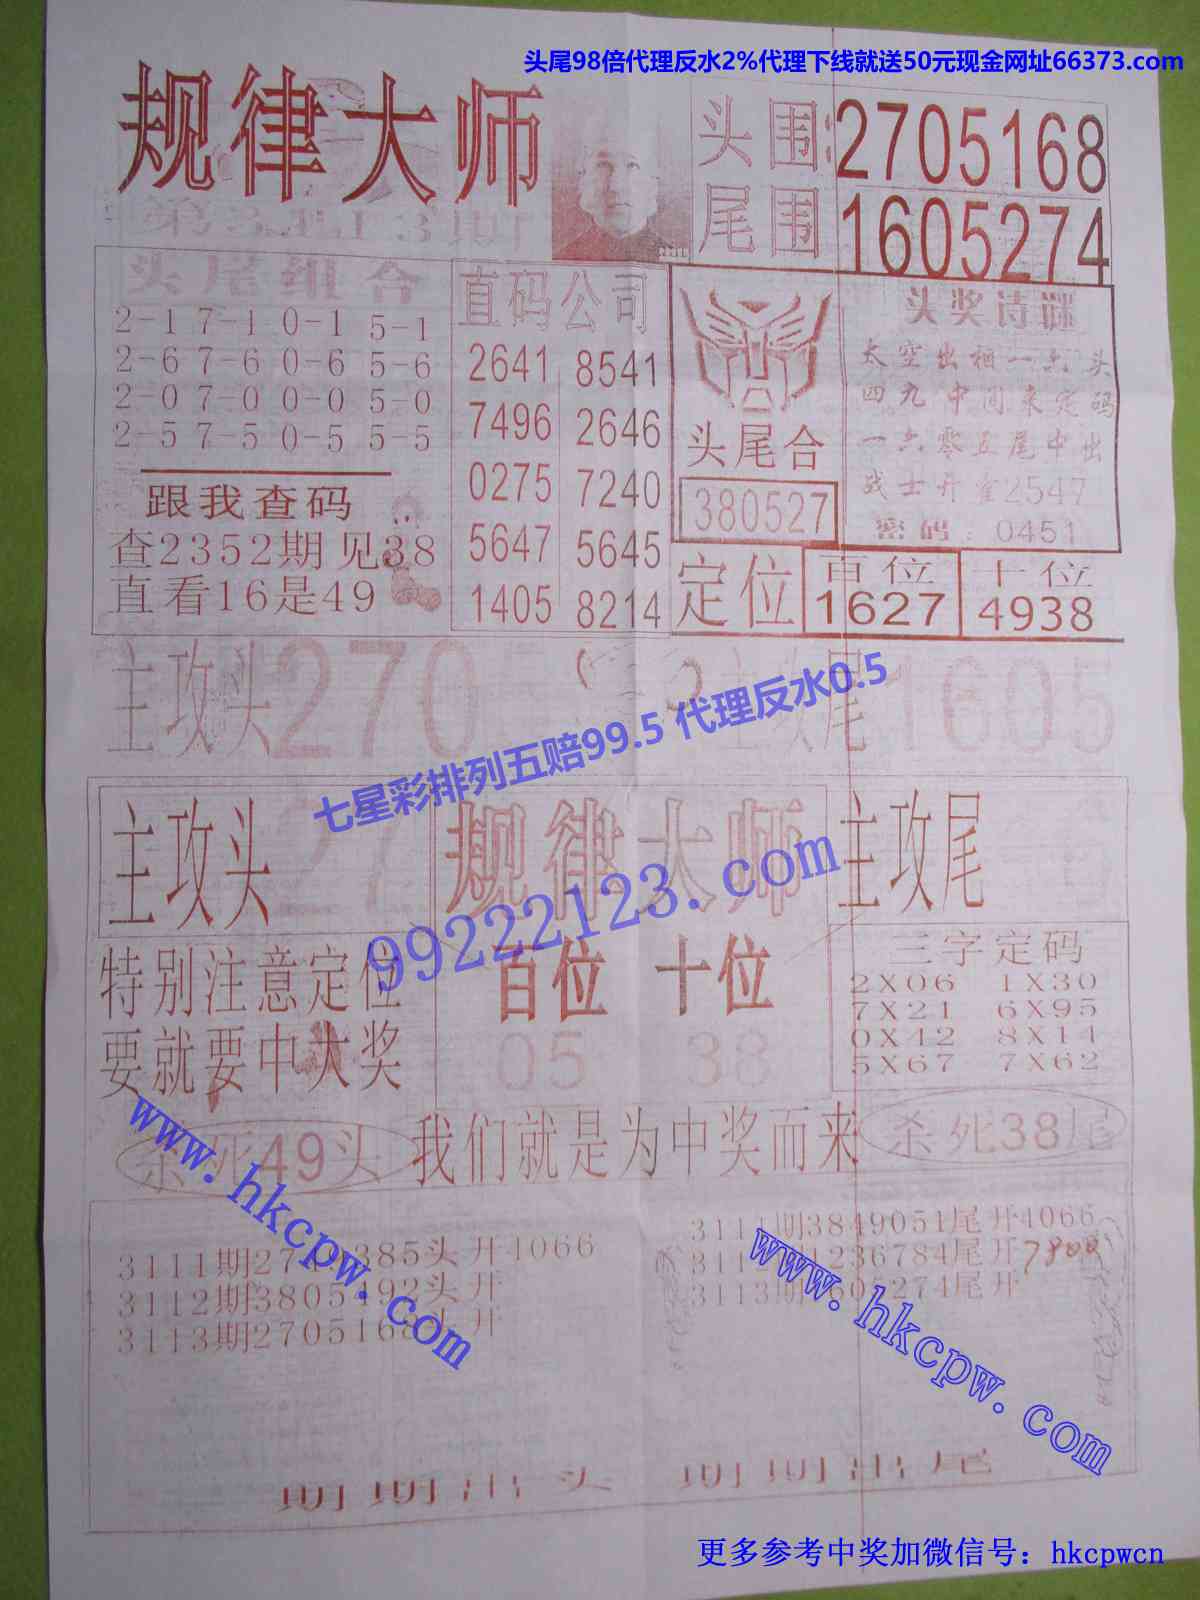 头尾98倍代理反水2%代理下线就送50元现金网址66373.com
规律大师
头围:2705168
尾围 1605274
头尾组合
2-1 7-1 0-1 5-1
2-6 7-6 0-6 5-6
2-0 7-0 0-0 5-0
2-5 7-5 0-5 5-5
跟我查码
查2352期见38
直看16是49
直码公司
2641 8541
7496 2646
0275 7240
5647 5645
1405 8214
头尾合
380527
头奖诗谜
太空出相一六头
四九中间来定码
一六零五尾中出
战士开金2547
密码:0451
定位 百位 十位
1627 4938
主攻头270
主攻尾1605
七星彩排列五赔99.5 代理反水0.5
主攻头
规律大师
主攻尾
99222123.com
特别注意定位
要就要中大奖
百位 十位
05 38
三字定码
2X06 1X30
7X21 6X95
0X42 8X14
5X67 7X62
杀死49头
我们就是为中奖而来
杀死38尾
www.hkcpw.com
3111期 385头开4066
3112期3805492头开
3113期2705168头开
3111期3849051尾开4066
1236784尾开7800
3113期 605274尾开
www.hkcpw.com
期期出头 期期出尾
更多参考中奖加微信号：hkcpwcn